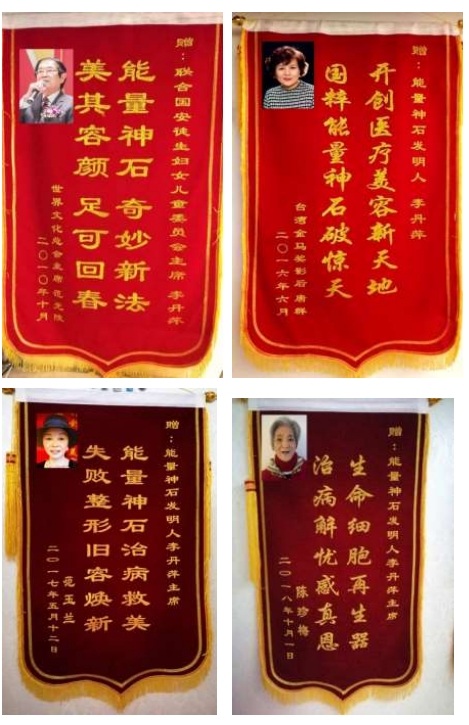 赠：联合国安徒生妇女儿童委员会主席 李丹萍
能量神石 奇妙新法
美其容颜 足可回春
世界文化总会主席
二〇一〇年十月
赠：能量神石发明人 李丹萍
开创医疗美容新天地
国粹能量神石破惊天
台湾金马奖影后唐群
二〇一六年六月
赠：能量神石发明人李丹萍主席
能量神石治病救美
失败整形旧容焕新
玉兰
二〇一七年五月十二日
赠：能量神石发明人李丹萍主席
生命细胞再生器
治病解忧感真恩
陈珍梅
二〇一八年十月一日